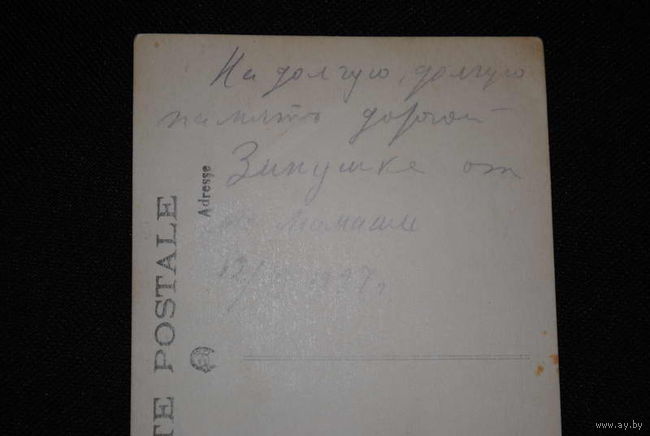 На долгую, долгую
память дорогой
Зинушке от
Мамаши
1927 г.
Adresse
TE POSTALE
www.ay.by